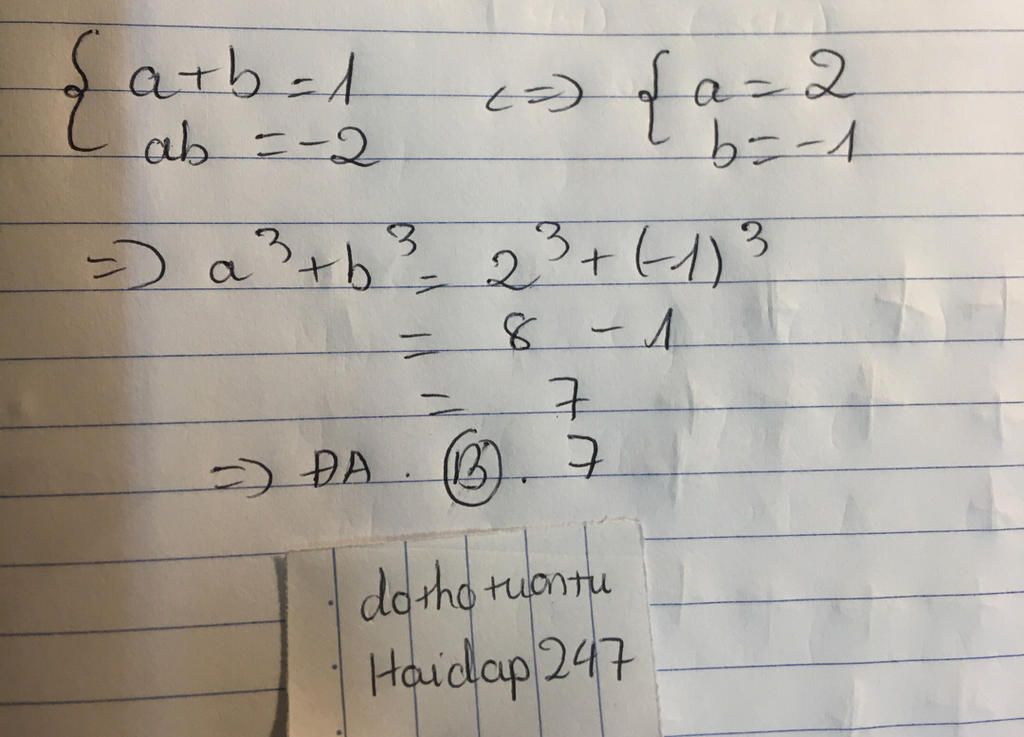 { a+b = 1 <=> { a = 2
ab = -2 b = -1
=> a³ + b³ = 2³ + (-1)³
= 8 - 1
= 7
=> ĐA . B . 7
. dothotuontu
. Hoidap247